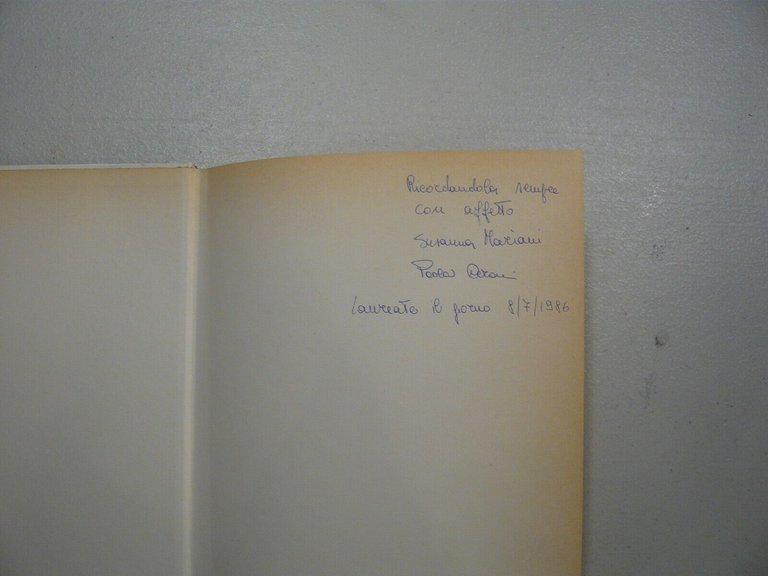 Ricordandola sempre
con affetto
Susanna Mariani
Paola
Laureate il giorno 8/7/1986